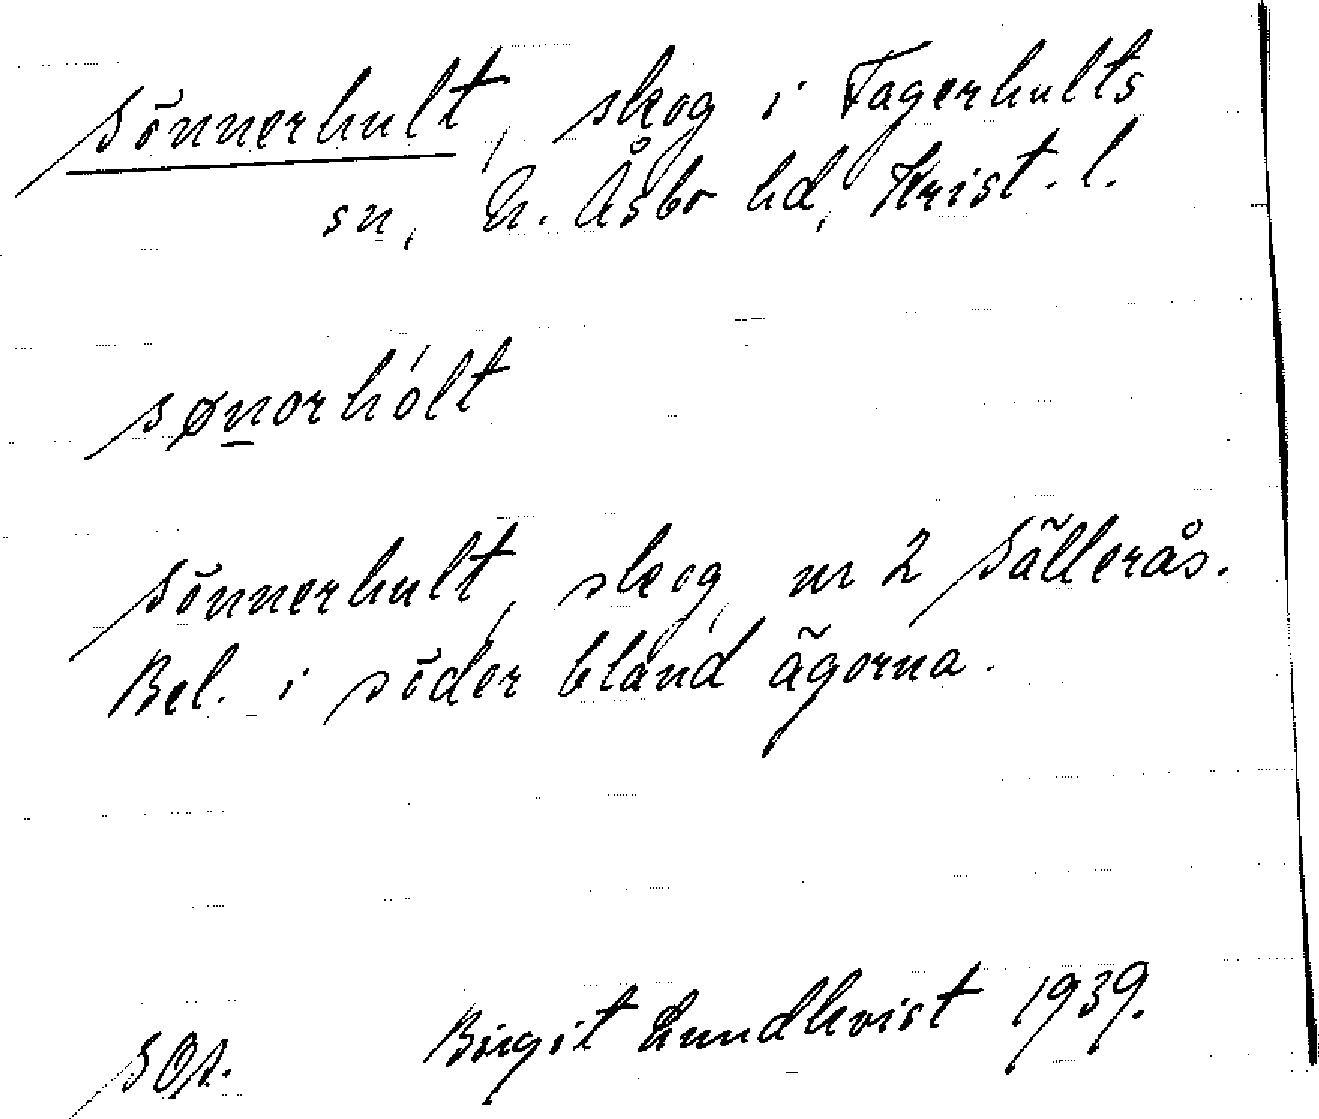 Sönnerhult, skog i Fagerhults
sn, N. Åsbo hd, Krist. l.
sønorhólt
Sönnerhult, skog, nr 2 Sällerås.
Bel. i söder bland ägorna.
Birgit Lundkvist 1939.